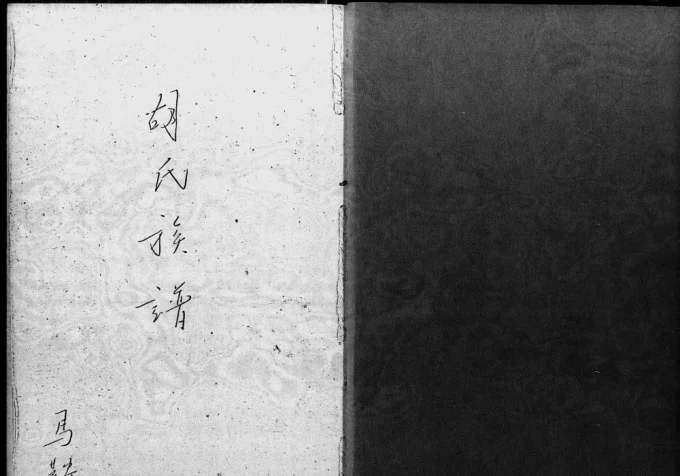 胡氏族譜
马